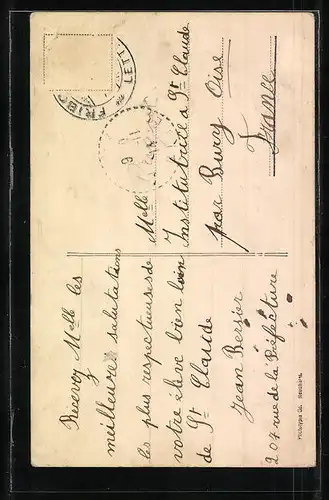 Recevez Melle les
meilleures salutations
les plus respectueuses de
votre élève bien loin
de St Claude
Jean Bersier
204 rue de la Préfecture
Melle
Institutrice à St Claude
par Bury Oise
France